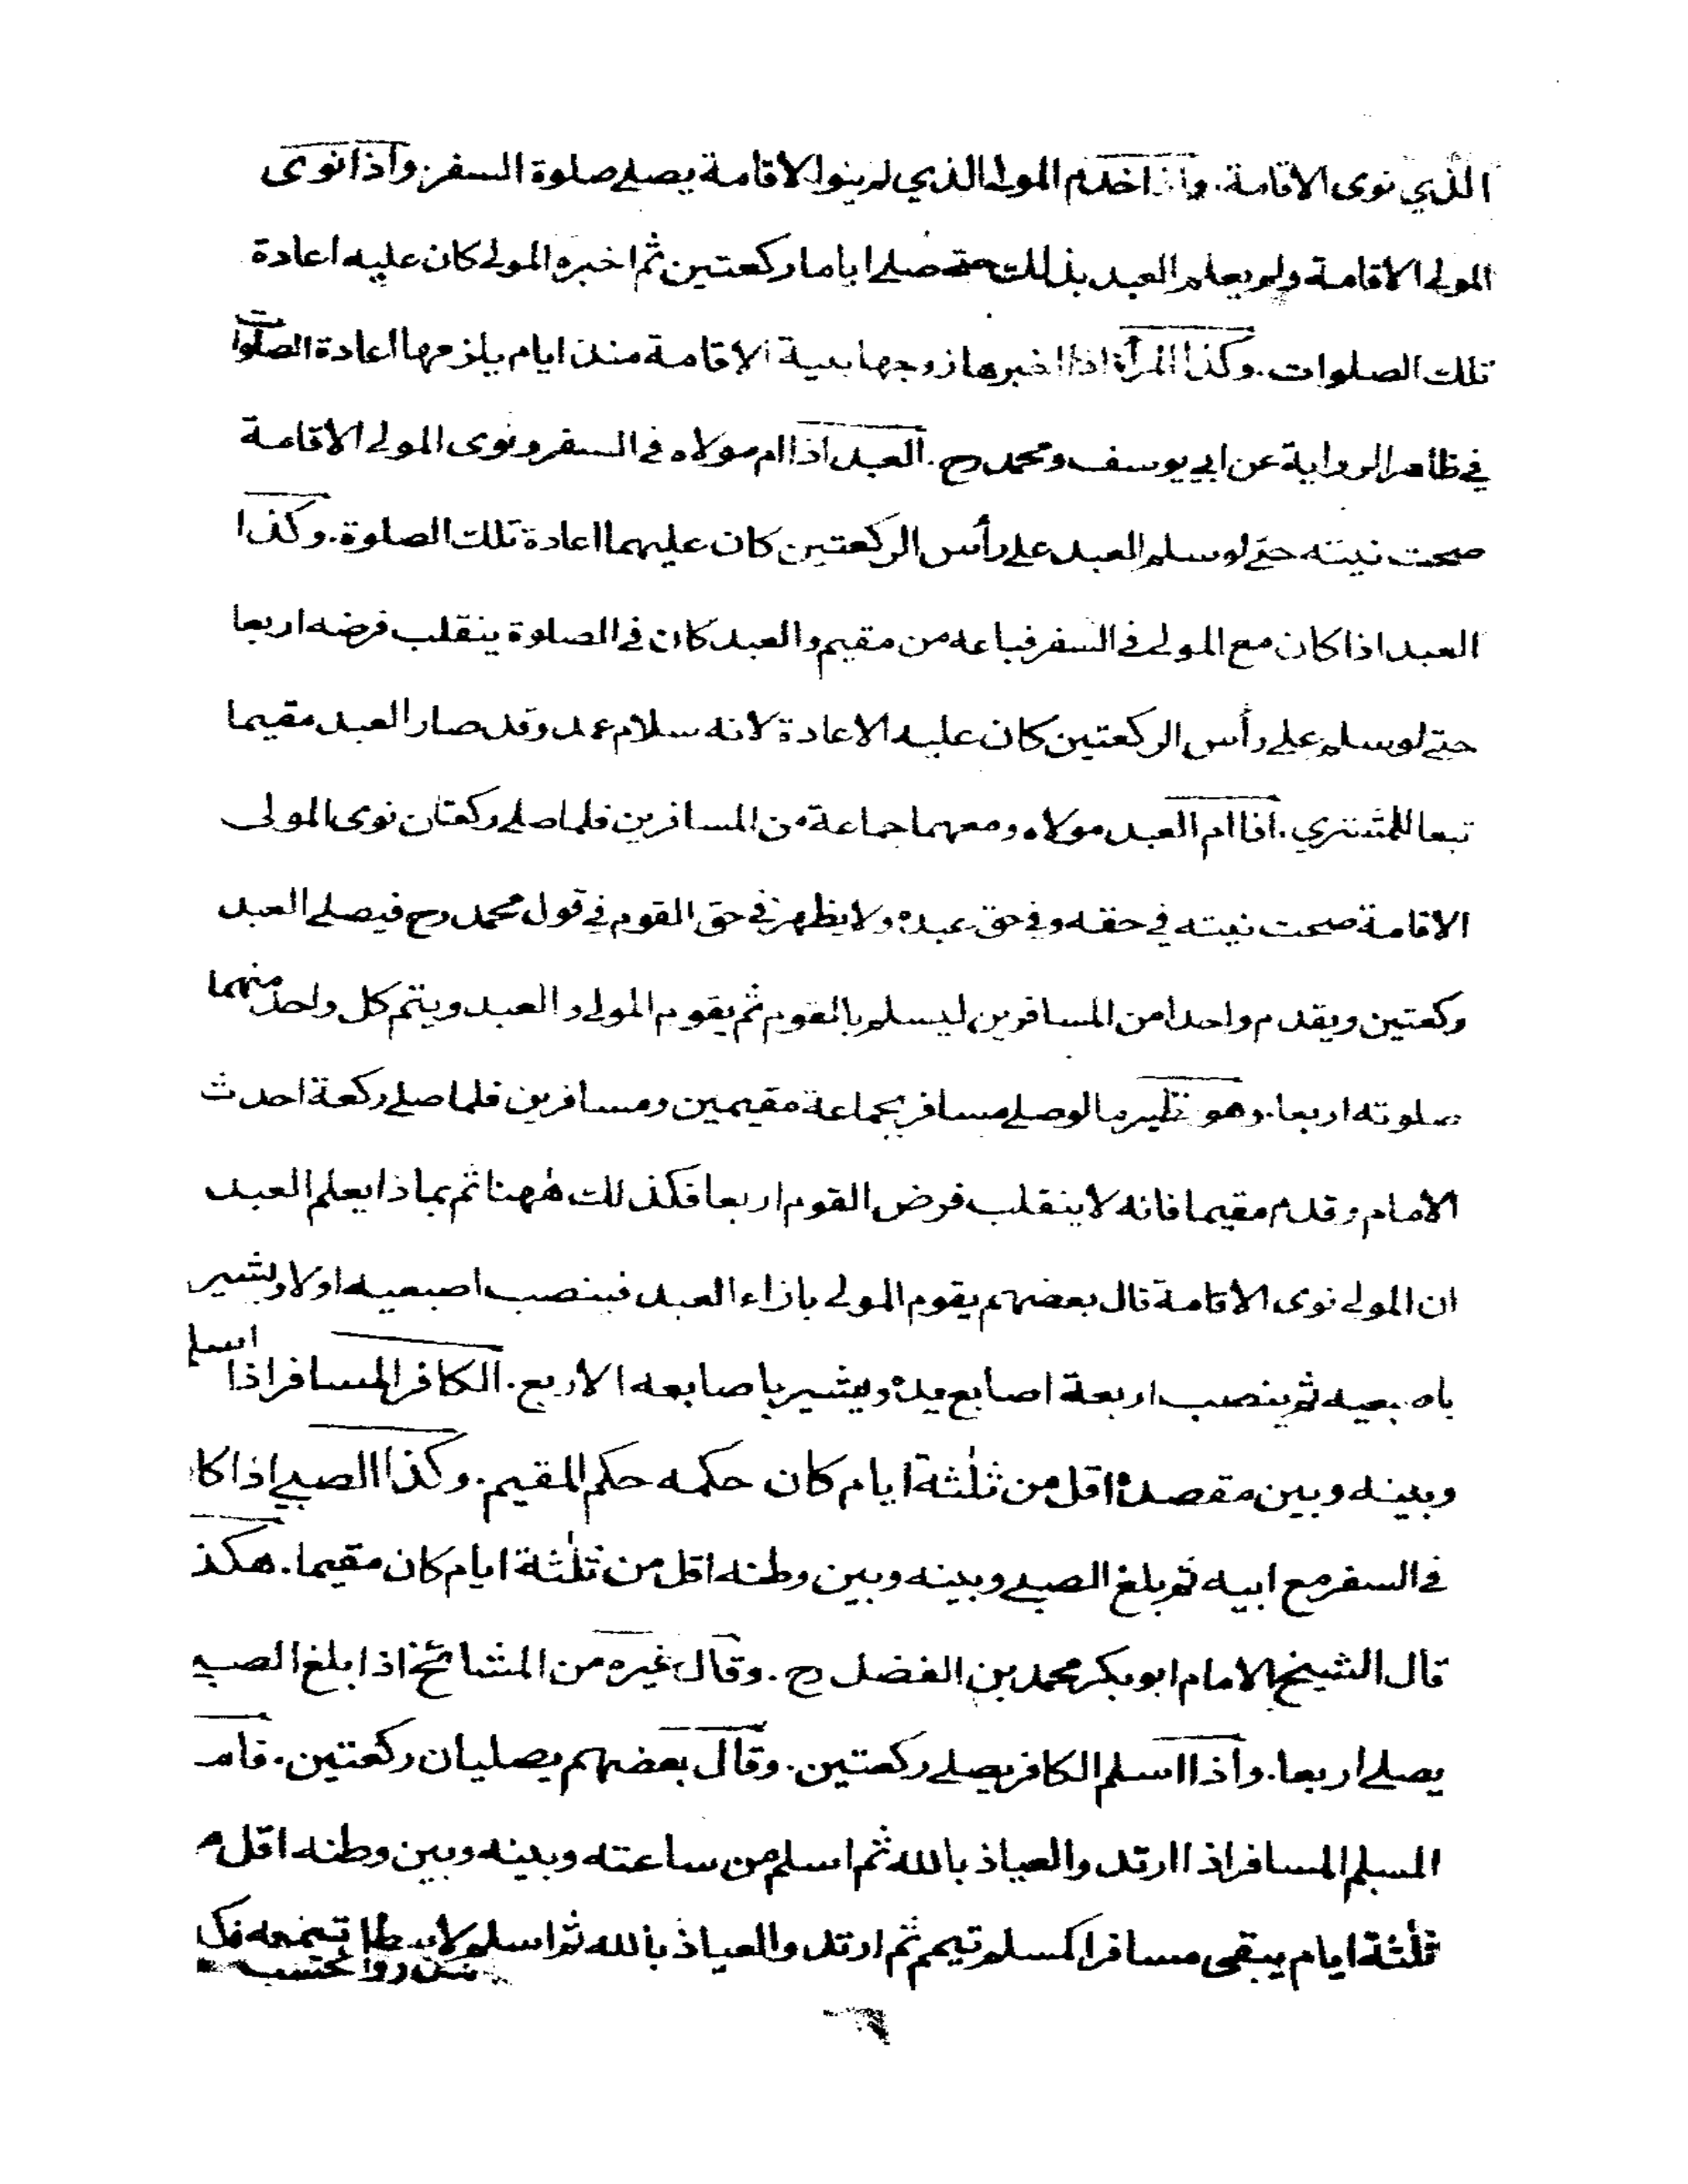 الذي نوى الاقامة. واذا خدم المولى الذي لم ينوا لاقامة يصلي صلوة السفر. واذا نوى
المولى الاقامة ولم يعلم العبد بذلك حتى صلى اياما ركعتين ثم اخبره المولى كان عليه اعادة
تلك الصلوات. وكذا المرأة اذا اخبرها زوجها بنية الاقامة منذ ايام يلزمها اعادة الصلوات
في ظاهر الرواية عن ابي يوسف ومحمد رح. العبد اذا ام مولاه في السفر ونوى المولى الاقامة
صحت نيته حتى لو سلم العبد على رأس الركعتين كان عليهما اعادة تلك الصلوة. وكذا
العبد اذا كان مع المولى في السفر فباعه من مقيم والعبد كان في الصلوة ينقلب فرضه اربعا
حتى لو سلم على رأس الركعتين كان عليه الاعادة لانه سلام عمد وقد صار العبد مقيما
تبعا للمشتري. اذا ام العبد مولاه ومعهما جماعة من المسافرين فلما صلى ركعتان نوى المولى
الاقامة صحت نيته في حقه وفي حق عبده ولا يظهر في حق القوم في قول محمد رح فيصلي العبد
ركعتين ويقدم واحدا من المسافرين ليسلم بالقوم ثم يقوم المولى والعبد ويتم كل واحد منهما
صلوته اربعا. وهو نظير ما لو صلى مسافر بجماعة مقيمين ومسافرين فلما صلى ركعة احدث
الامام وقدم مقيما فانه لا ينقلب فرض القوم اربعا فكذلك ههنا ثم بماذا يعلم العبد
ان المولى نوى الاقامة قال بعضهم يقوم المولى بازاء العبد فينصب اصبعيه اولا ويشير
باصبعيه ثم ينصب اربعة اصابع يده ويشير باصابعه الاربع. الكافر المسافر اذا اسلم
وبينه وبين مقصده اقل من ثلثة ايام كان حكمه حكم المقيم. وكذا الصبي اذا كا
في السفر مع ابيه ثم بلغ الصبي وبينه وبين وطنه اقل من ثلثة ايام كان مقيما. هكذ
قال الشيخ الامام ابو بكر محمد بن الفضل رح. وقال غيره من المشائخ اذا بلغ الصبي
يصلي اربعا. واذا اسلم الكافر يصلي ركعتين. وقال بعضهم يصليان ركعتين. فاما
المسلم المسافر اذا ارتد والعياذ بالله ثم اسلم من ساعته وبينه وبين وطنه اقل م
ثلثة ايام يبقى مسافرا كمسلم تيمم ثم ارتد والعياذ بالله ثم اسلم لا يبطل تيممه